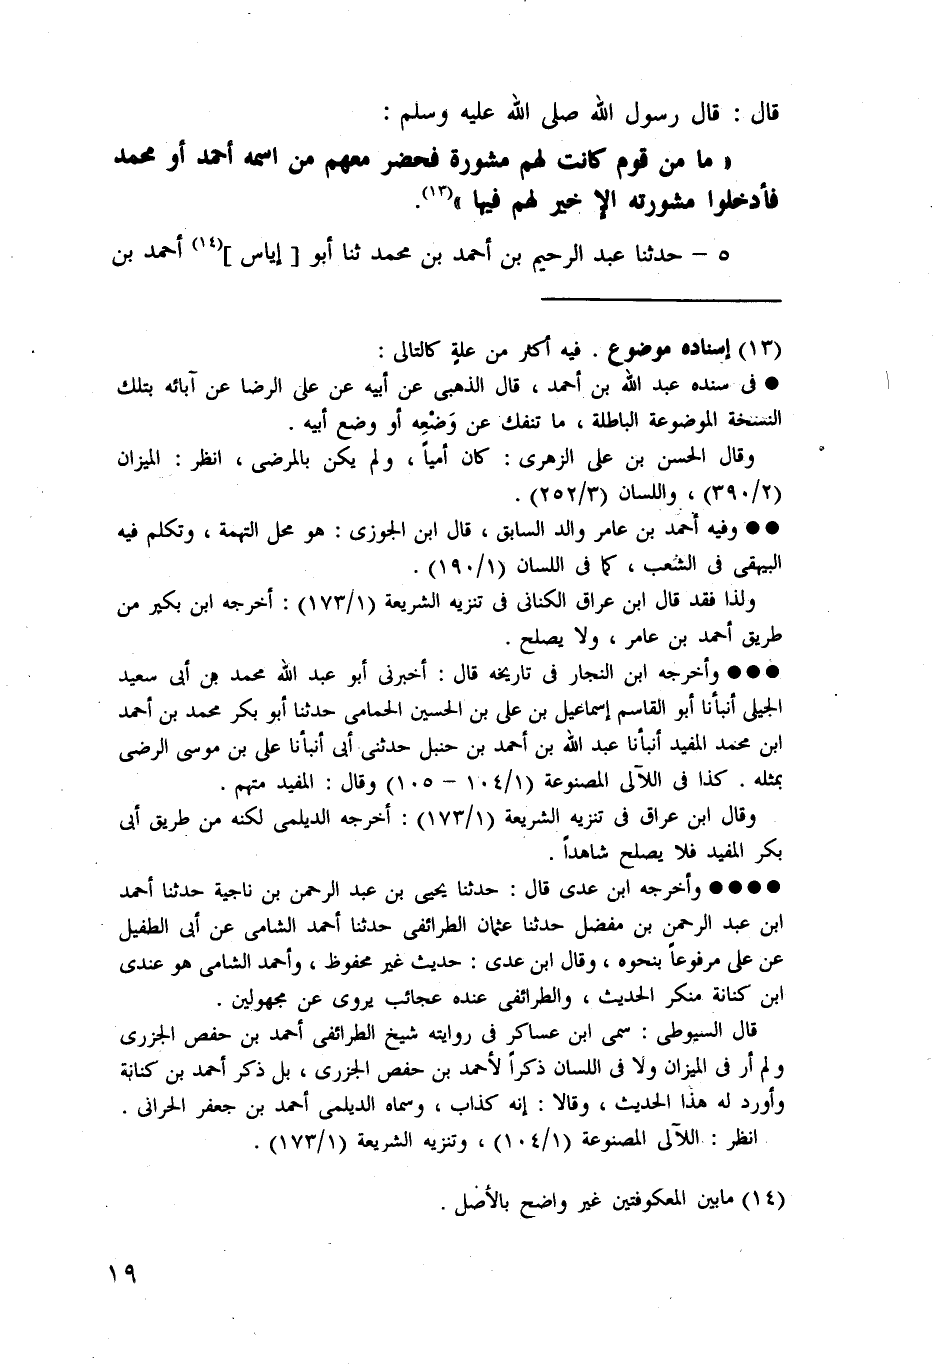 قال : قال رسول الله صلى الله عليه وسلم :
« ما من قوم كانت لهم مشورة فحضر معهم من اسمه أحمد أو محمد
فأدخلوا مشورته الإ خير لهم فيها »(١٣).
٥ – حدثنا عبد الرحيم بن أحمد بن محمد ثنا أبو [ إياس ](١٤) أحمد بن
(١٣) إسناده موضوع . فيه أكثر من علةٍ كالتالى :
● فى سنده عبد الله بن أحمد ، قال الذهبى عن أبيه عن على الرضا عن آبائه بتلك
النسخة الموضوعة الباطلة ، ما تنفك عن وَضْعِه أو وضع أبيه .
وقال الحسن بن على الزهرى : كان أمياً ، ولم يكن بالمرضى ، انظر : الميزان
(٣٩٠/٢) ، واللسان (٢٥٢/٣) .
●● وفيه أحمد بن عامر والد السابق ، قال ابن الجوزى : هو محل التهمة ، وتكلم فيه
البيهقى فى الشعب ، كما فى اللسان (١٩٠/١) .
ولذا فقد قال ابن عراق الكنانى فى تنزيه الشريعة (١٧٣/١) : أخرجه ابن بكير من
طريق أحمد بن عامر ، ولا يصلح .
●●● وأخرجه ابن النجار فى تاريخه قال : أخبرنى أبو عبد الله محمد بن أبى سعيد
الجيلى أنبأنا أبو القاسم إسماعيل بن على بن الحسين الحمامى حدثنا أبو بكر محمد بن أحمد
ابن محمد المفيد أنبأنا عبد الله بن أحمد بن حنبل حدثنى أبى أنبأنا على بن موسى الرضى
بمثله . كذا فى اللآلى المصنوعة (١٠٤/١ – ١٠٥) وقال : المفيد متهم .
وقال ابن عراق فى تنزيه الشريعة (١٧٣/١) : أخرجه الديلمى لكنه من طريق أبى
بكر المفيد فلا يصلح شاهداً .
●●●● وأخرجه ابن عدى قال : حدثنا يحيى بن عبد الرحمن بن ناجية حدثنا أحمد
ابن عبد الرحمن بن مفضل حدثنا عثمان الطرائفى حدثنا أحمد الشامى عن أبى الطفيل
عن على مرفوعاً بنحوه ، وقال ابن عدى : حديث غير محفوظ ، وأحمد الشامى هو عندى
ابن كنانة منكر الحديث ، والطرائفى عنده عجائب يروى عن مجهولين .
قال السيوطى : سمى ابن عساكر فى روايته شيخ الطرائفى أحمد بن حفص الجزرى
ولم أر فى الميزان ولا فى اللسان ذكراً لأحمد بن حفص الجزرى ، بل ذكر أحمد بن كنانة
وأورد له هذا الحديث ، وقالا : إنه كذاب ، وسماه الديلمى أحمد بن جعفر الحرانى .
انظر : اللآلى المصنوعة (١٠٤/١) ، وتنزيه الشريعة (١٧٣/١) .
(١٤) مابين المعكوفتين غير واضح بالأصل .
١٩